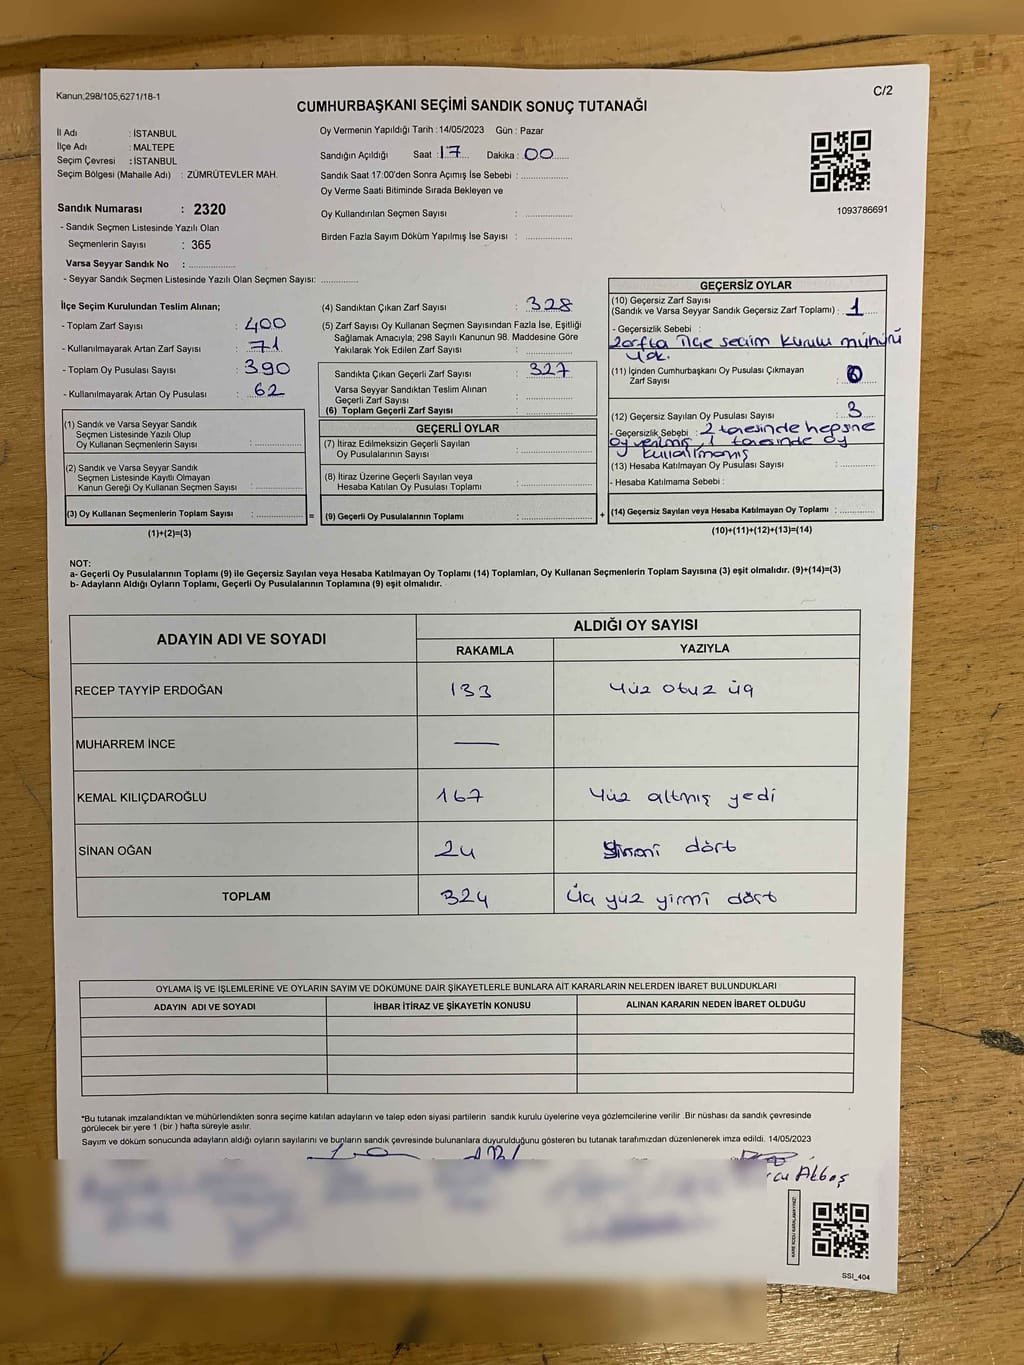 Kanun;298/105,6271/18-1
C/2
CUMHURBAŞKANI SEÇİMİ SANDIK SONUÇ TUTANAĞI
İl Adı : İSTANBUL
İlçe Adı : MALTEPE
Seçim Çevresi : İSTANBUL
Seçim Bölgesi (Mahalle Adı) : ZÜMRÜTEVLER MAH.
Sandık Numarası : 2320
- Sandık Seçmen Listesinde Yazılı Olan
Seçmenlerin Sayısı : 365
Varsa Seyyar Sandık No : ..................
- Seyyar Sandık Seçmen Listesinde Yazılı Olan Seçmen Sayısı: ..............
Oy Vermenin Yapıldığı Tarih : 14/05/2023 Gün : Pazar
Sandığın Açıldığı Saat : 17 Dakika : 00
Sandık Saat 17:00'den Sonra Açımış İse Sebebi : ..................
Oy Verme Saati Bitiminde Sırada Bekleyen ve
Oy Kullandırılan Seçmen Sayısı : ..................
Birden Fazla Sayım Döküm Yapılmış İse Sayısı : ..................
1093786691
İlçe Seçim Kurulundan Teslim Alınan;
- Toplam Zarf Sayısı : 400
- Kullanılmayarak Artan Zarf Sayısı : 71
- Toplam Oy Pusulası Sayısı : 390
- Kullanılmayarak Artan Oy Pusulası : 62
(1) Sandık ve Varsa Seyyar Sandık
Seçmen Listesinde Yazılı Olup
Oy Kullanan Seçmenlerin Sayısı : ..................
(2) Sandık ve Varsa Seyyar Sandık
Seçmen Listesinde Kayıtlı Olmayan
Kanun Gereği Oy Kullanan Seçmen Sayısı : ..................
(3) Oy Kullanan Seçmenlerin Toplam Sayısı : ..................
(1)+(2)=(3)
(4) Sandıktan Çıkan Zarf Sayısı : 328
(5) Zarf Sayısı Oy Kullanan Seçmen Sayısından Fazla İse, Eşitliği
Sağlamak Amacıyla; 298 Sayılı Kanunun 98. Maddesine Göre
Yakılarak Yok Edilen Zarf Sayısı : ..................
Sandıkta Çıkan Geçerli Zarf Sayısı : 327
Varsa Seyyar Sandıktan Teslim Alınan
Geçerli Zarf Sayısı : ..................
(6) Toplam Geçerli Zarf Sayısı : ..................
GEÇERLİ OYLAR
(7) İtiraz Edilmeksizin Geçerli Sayılan
Oy Pusulalarının Sayısı : ..................
(8) İtiraz Üzerine Geçerli Sayılan veya
Hesaba Katılan Oy Pusulası Toplamı : ..................
= (9) Geçerli Oy Pusulalarının Toplamı : ..................
GEÇERSİZ OYLAR
(10) Geçersiz Zarf Sayısı
(Sandık ve Varsa Seyyar Sandık Geçersiz Zarf Toplamı) : 1
- Geçersizlik Sebebi :
Zarfta ilçe seçim kurulu mühürü
yok.
(11) İçinden Cumhurbaşkanı Oy Pusulası Çıkmayan
Zarf Sayısı : 0
(12) Geçersiz Sayılan Oy Pusulası Sayısı : 3
- Geçersizlik Sebebi : 2 tanesinde hepsine
oy verilmiş, 1 tanesinde oy
kullanılmamış
(13) Hesaba Katılmayan Oy Pusulası Sayısı : ..................
- Hesaba Katılmama Sebebi :
+ (14) Geçersiz Sayılan veya Hesaba Katılmayan Oy Toplamı : ..............
(10)+(11)+(12)+(13)=(14)
NOT:
a- Geçerli Oy Pusulalarının Toplamı (9) ile Geçersiz Sayılan veya Hesaba Katılmayan Oy Toplamı (14) Toplamları, Oy Kullanan Seçmenlerin Toplam Sayısına (3) eşit olmalıdır. (9)+(14)=(3)
b- Adayların Aldığı Oyların Toplamı, Geçerli Oy Pusulalarının Toplamına (9) eşit olmalıdır.
ADAYIN ADI VE SOYADI
ALDIĞI OY SAYISI
RAKAMLA YAZIYLA
RECEP TAYYİP ERDOĞAN 133 Yüz otuz üç
MUHARREM İNCE —
KEMAL KILIÇDAROĞLU 167 Yüz altmış yedi
SİNAN OĞAN 24 Yirmi dört
TOPLAM 324 Üç yüz yirmi dört
OYLAMA İŞ VE İŞLEMLERİNE VE OYLARIN SAYIM VE DÖKÜMÜNE DAİR ŞİKAYETLERLE BUNLARA AİT KARARLARIN NELERDEN İBARET BULUNDUKLARI
ADAYIN ADI VE SOYADI İHBAR İTİRAZ VE ŞİKAYETİN KONUSU ALINAN KARARIN NEDEN İBARET OLDUĞU
*Bu tutanak imzalandıktan ve mühürlendikten sonra seçime katılan adayların ve talep eden siyasi partilerin sandık kurulu üyelerine veya gözlemcilerine verilir .Bir nüshası da sandık çevresinde
görülecek bir yere 1 (bir ) hafta süreyle asılır.
Sayım ve döküm sonucunda adayların aldığı oyların sayılarını ve bunların sandık çevresinde bulunanlara duyurulduğunu gösteren bu tutanak tarafımızdan düzenlenerek imza edildi. 14/05/2023
Akbaş
KARE KODU KARALAMAYINIZ!
SSI_404